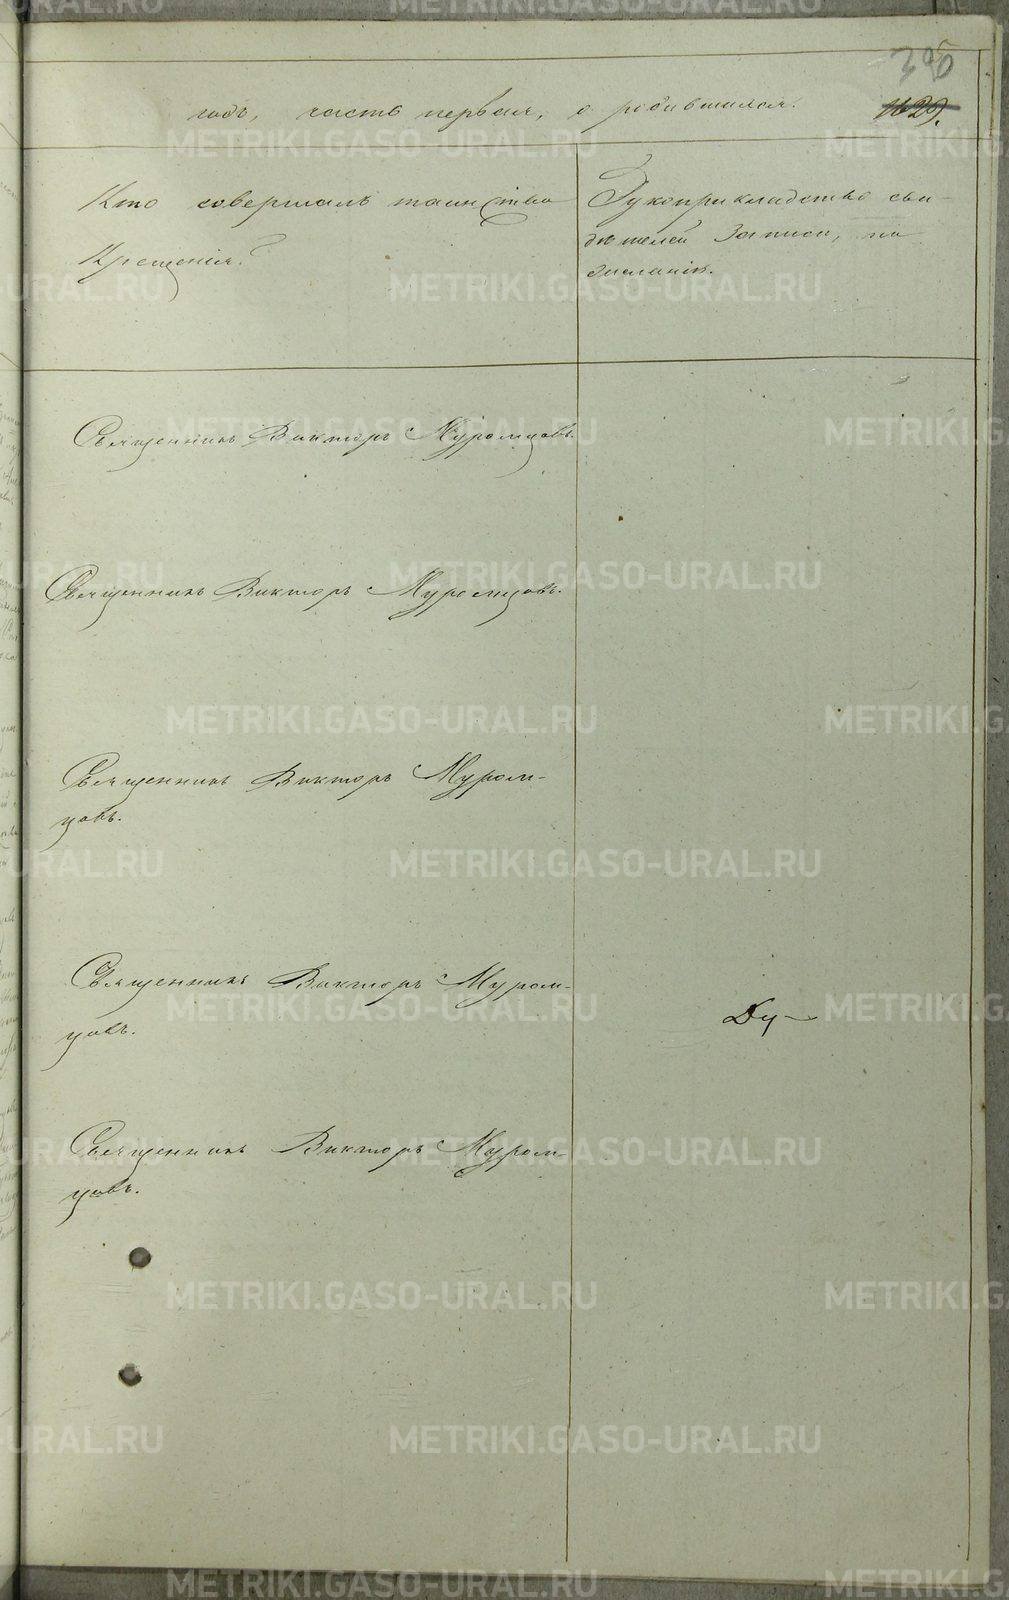 305
годъ, часть первая, о родившихся.
1629.
Кто совершалъ таинство
Крещенія?
Рукоприкладство сви-
дѣтелей записи, по
желанію.
Священникъ Викторъ Муромцовъ.
Священникъ Викторъ Муромцовъ.
Священникъ Викторъ Муром-
цовъ.
Священникъ Викторъ Муром-
цовъ.
Священникъ Викторъ Муром-
цовъ.
METRIKI.GASO-URAL.RU